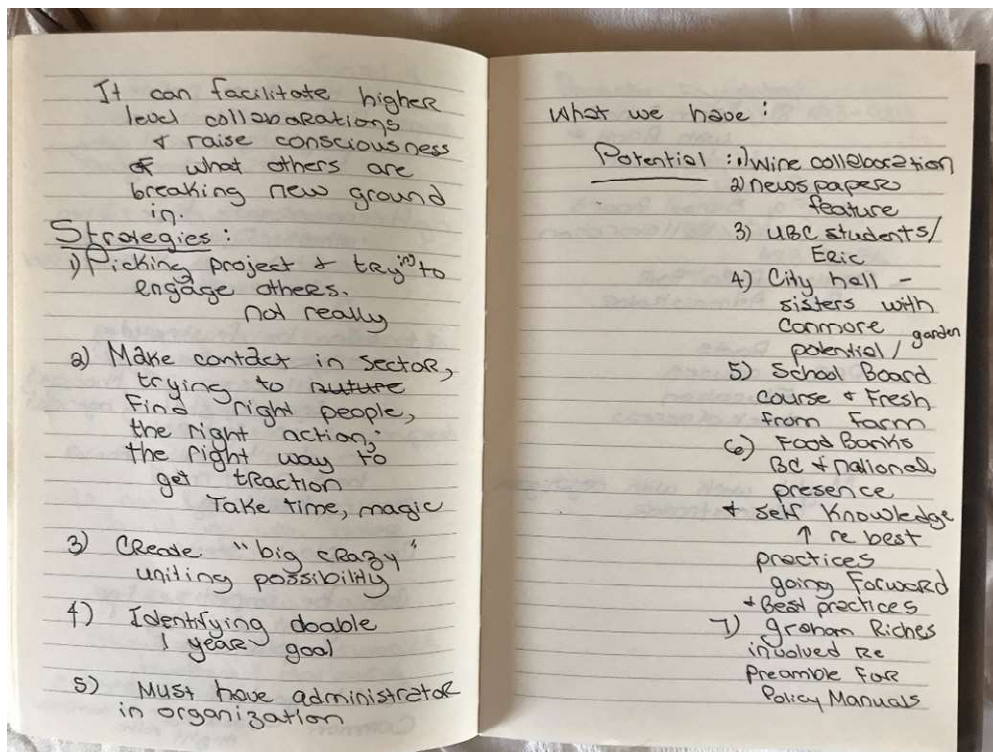 It can facilitate higher
level collaborations
& raise consciousness
of what others are
breaking new ground
in.
Strategies:
1) Picking project & trying to
engage others.
Not really
2) Make contact in sector,
trying to nuture
find right people,
the right action;
the right way to
get traction
Take time, magic
3) Create "big crazy"
uniting possibility
4) Identifying doable
1 year goal
5) Must have administrator
in organization
What we have:
Potential: 1) Wine collaboration
2) newspaper
feature
3) UBC students/
Eric
4) City hall -
sisters with
Canmore garden
potential/
5) School Board
course & Fresh
from Farm
6) Food Banks
BC & national
presence
& self knowledge
↑ re best
practices
going forward
+ Best practices
7) Graham Riches
involved re
Preamble for
Policy Manuals